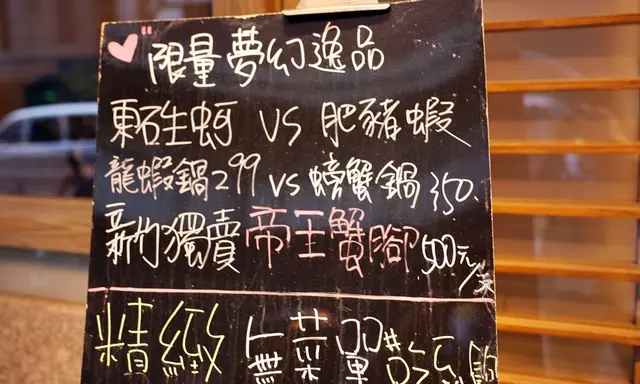 限量夢幻逸品
東石生蚵 VS 肥豬蝦
龍蝦鍋299 VS 螃蟹鍋350.
新竹獨賣帝王蟹腳500元/支
精緻無菜單